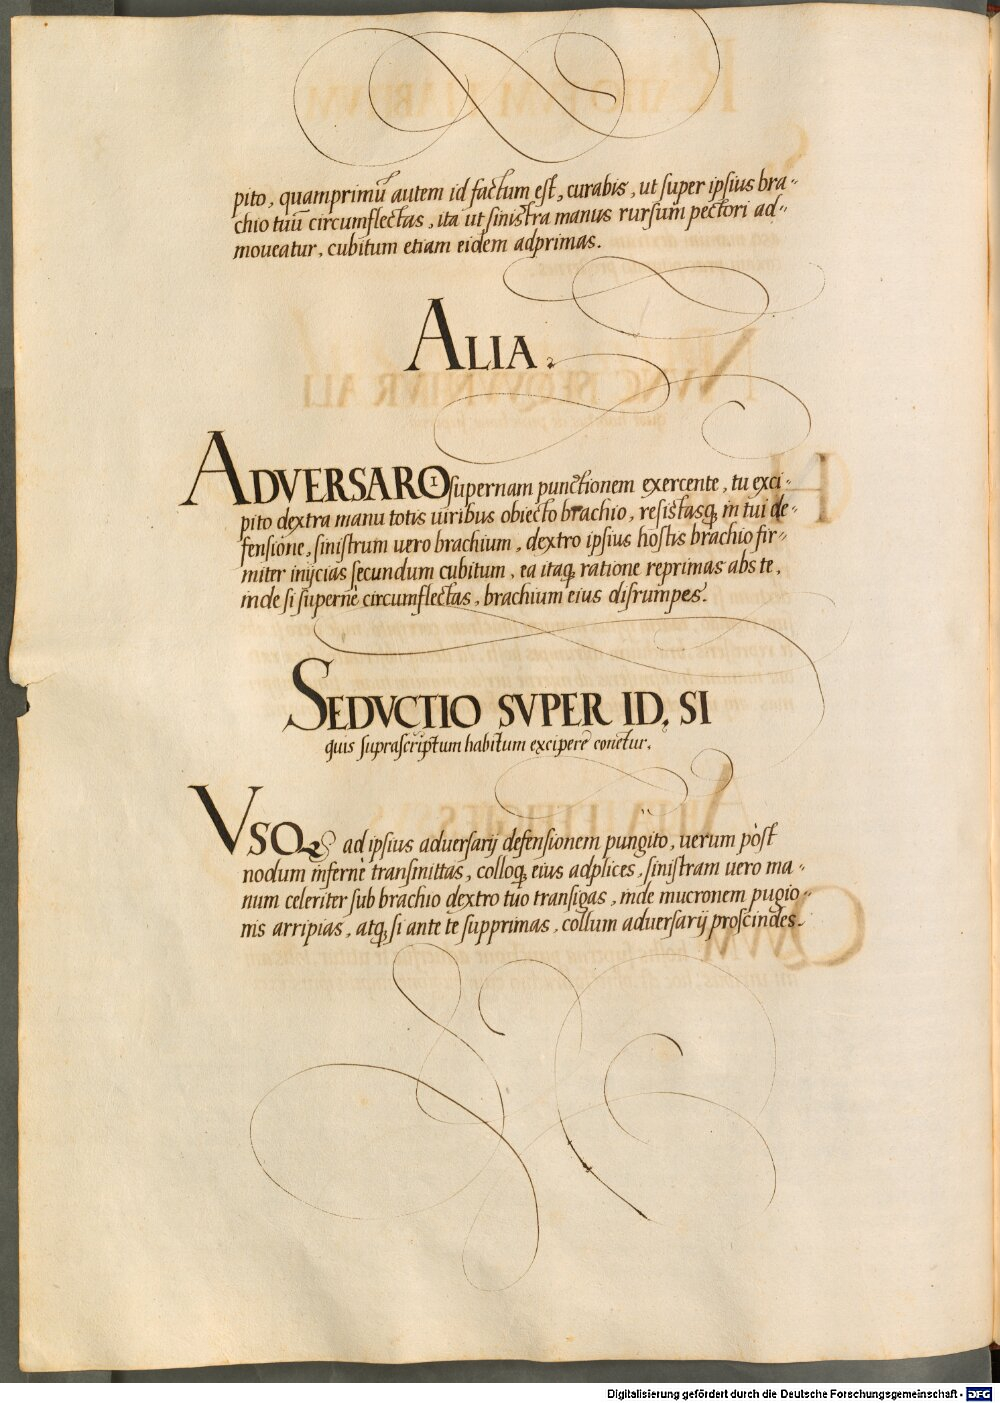 pito, quamprimũ autem id factum est, curabis, ut super ipsius bra-
chio tuũ circumflectas, ita ut sinistra manus rursum pectori ad-
moueatur, cubitum etiam eidem adprimas.
ALIA.
ADVERSARIO supernam punctionem exercente, tu exci-
pito dextra manu totis uiribus obiecto brachio, resistasq; in tui de-
fensione, sinistrum uero brachium, dextro ipsius hostis brachio fir-
miter inijcias secundum cubitum, ea itaq; ratione reprimas abs te,
inde si supernè circumflectas, brachium eius disrumpes.
SEDVCTIO SVPER ID, SI
quis suprascriptum habitum excipere conetur.
VSQ; ad ipsius aduersarij defensionem pungito, uerum pòst
nodum infernè transmittas, colloq; eius adplices, sinistram uero ma-
num celeriter sub brachio dextro tuo transigas, inde mucronem pugio-
nis arripias, atq; si ante te supprimas, collum aduersarij proscindes.
Digitalisierung gefördert durch die Deutsche Forschungsgemeinschaft - DFG